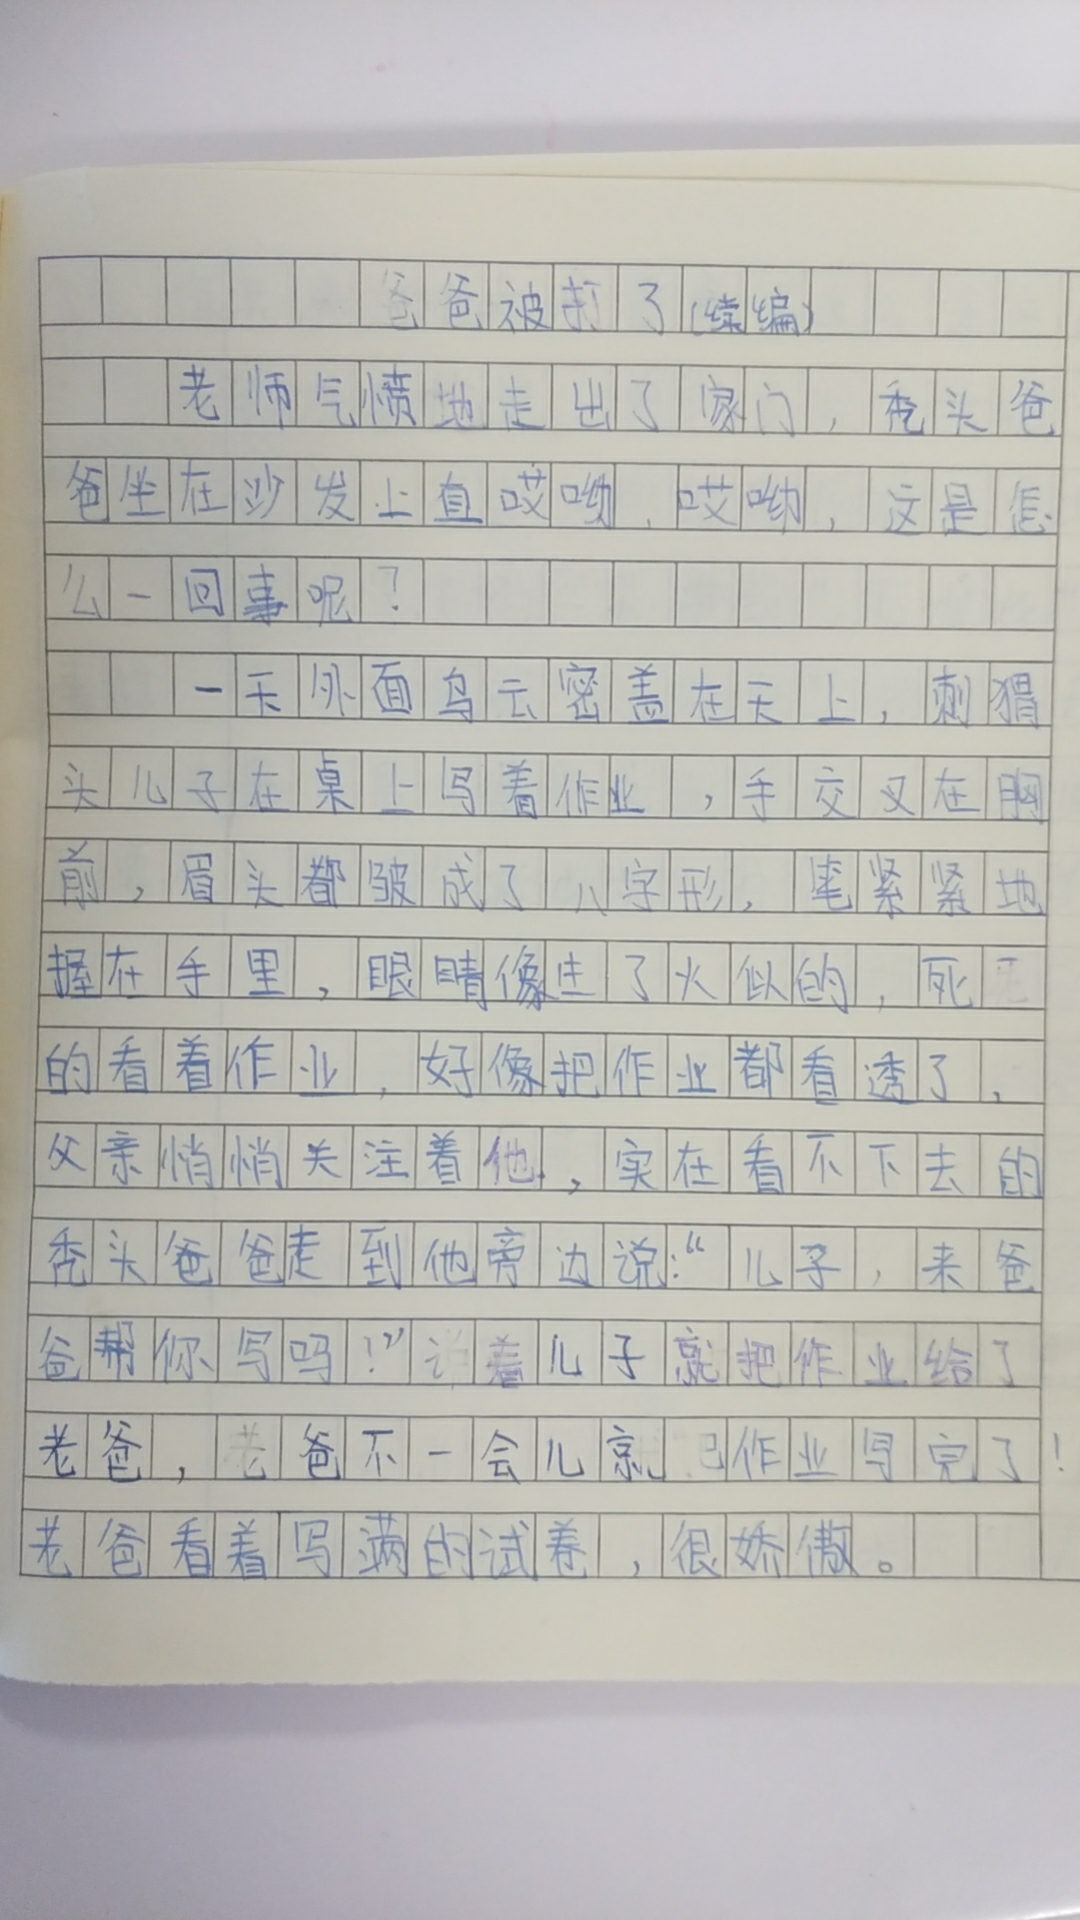 爸爸被打了(续编)
老师气愤地走出了家门，秃头爸
爸坐在沙发上直哎呦，哎呦，这是怎
么一回事呢？
一天外面乌云密盖在天上，刺猬
头儿子在桌上写着作业，手交叉在胸
前，眉头都皱成了八字形，笔紧紧地
握在手里，眼睛像进了火似的，死死
的看着作业，好像把作业都看透了，
父亲悄悄关注着他，实在看不下去的
秃头爸爸走到他旁边说:“儿子，来爸
爸帮你写吗！”说着儿子就把作业给了
老爸，老爸不一会儿就把作业写完了！
老爸看着写满的试卷，很娇傲。